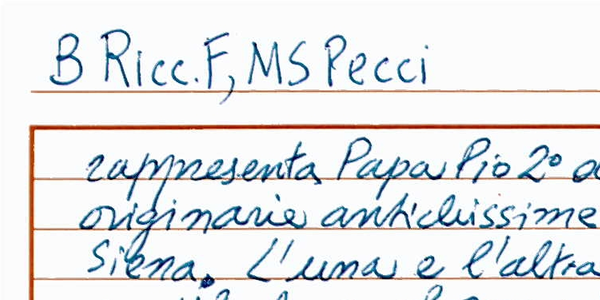 B Ricc. F, MS Pecci
rappresenta Papa Pio 2°
originarie antichissime
Siena. L'una e l'altra